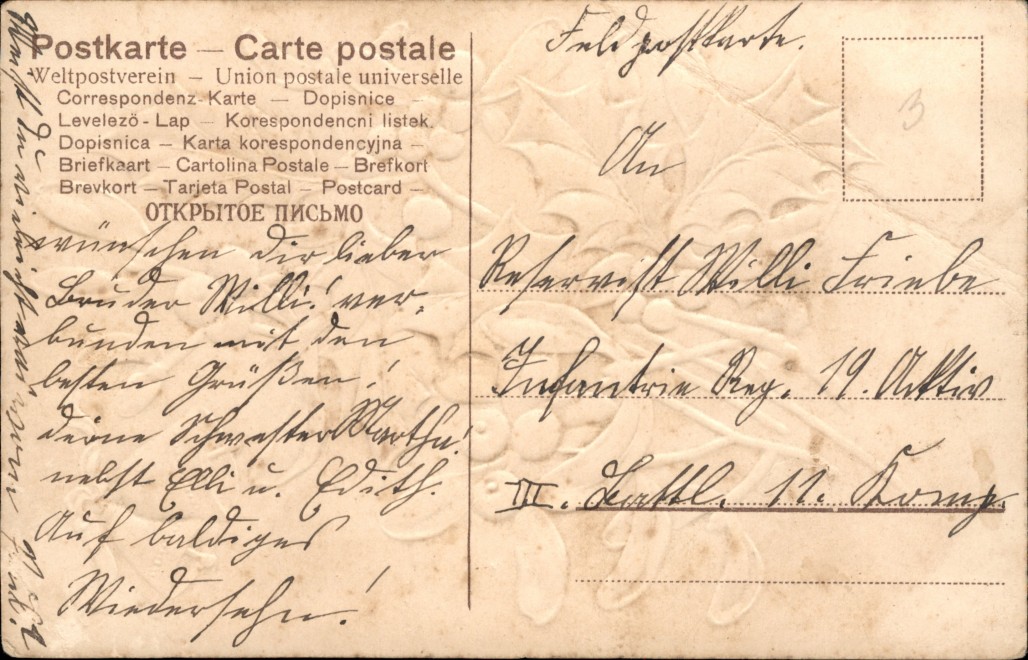 Postkarte — Carte postale
Weltpostverein — Union postale universelle
Correspondenz-Karte — Dopisnice —
Levelező-Lap — Korespondencni listek.
Dopisnica — Karta korespondencyjna —
Briefkaart — Cartolina Postale — Brefkort
Brevkort — Tarjeta Postal — Postcard —
ОТКРЫТОЕ ПИСЬМО
wünschen dir lieber
Bruder Willi! ver-
bunden mit den
besten Grüßen!
deine Schwester Martha!
nebst Elli u. Edith.
Auf baldiges
Wiedersehn!
Feldpostkarte.
An
Reservist Willi Friebe
Infantrie Reg. 19. Aktiv
III. Battl. 11. Komp.
3